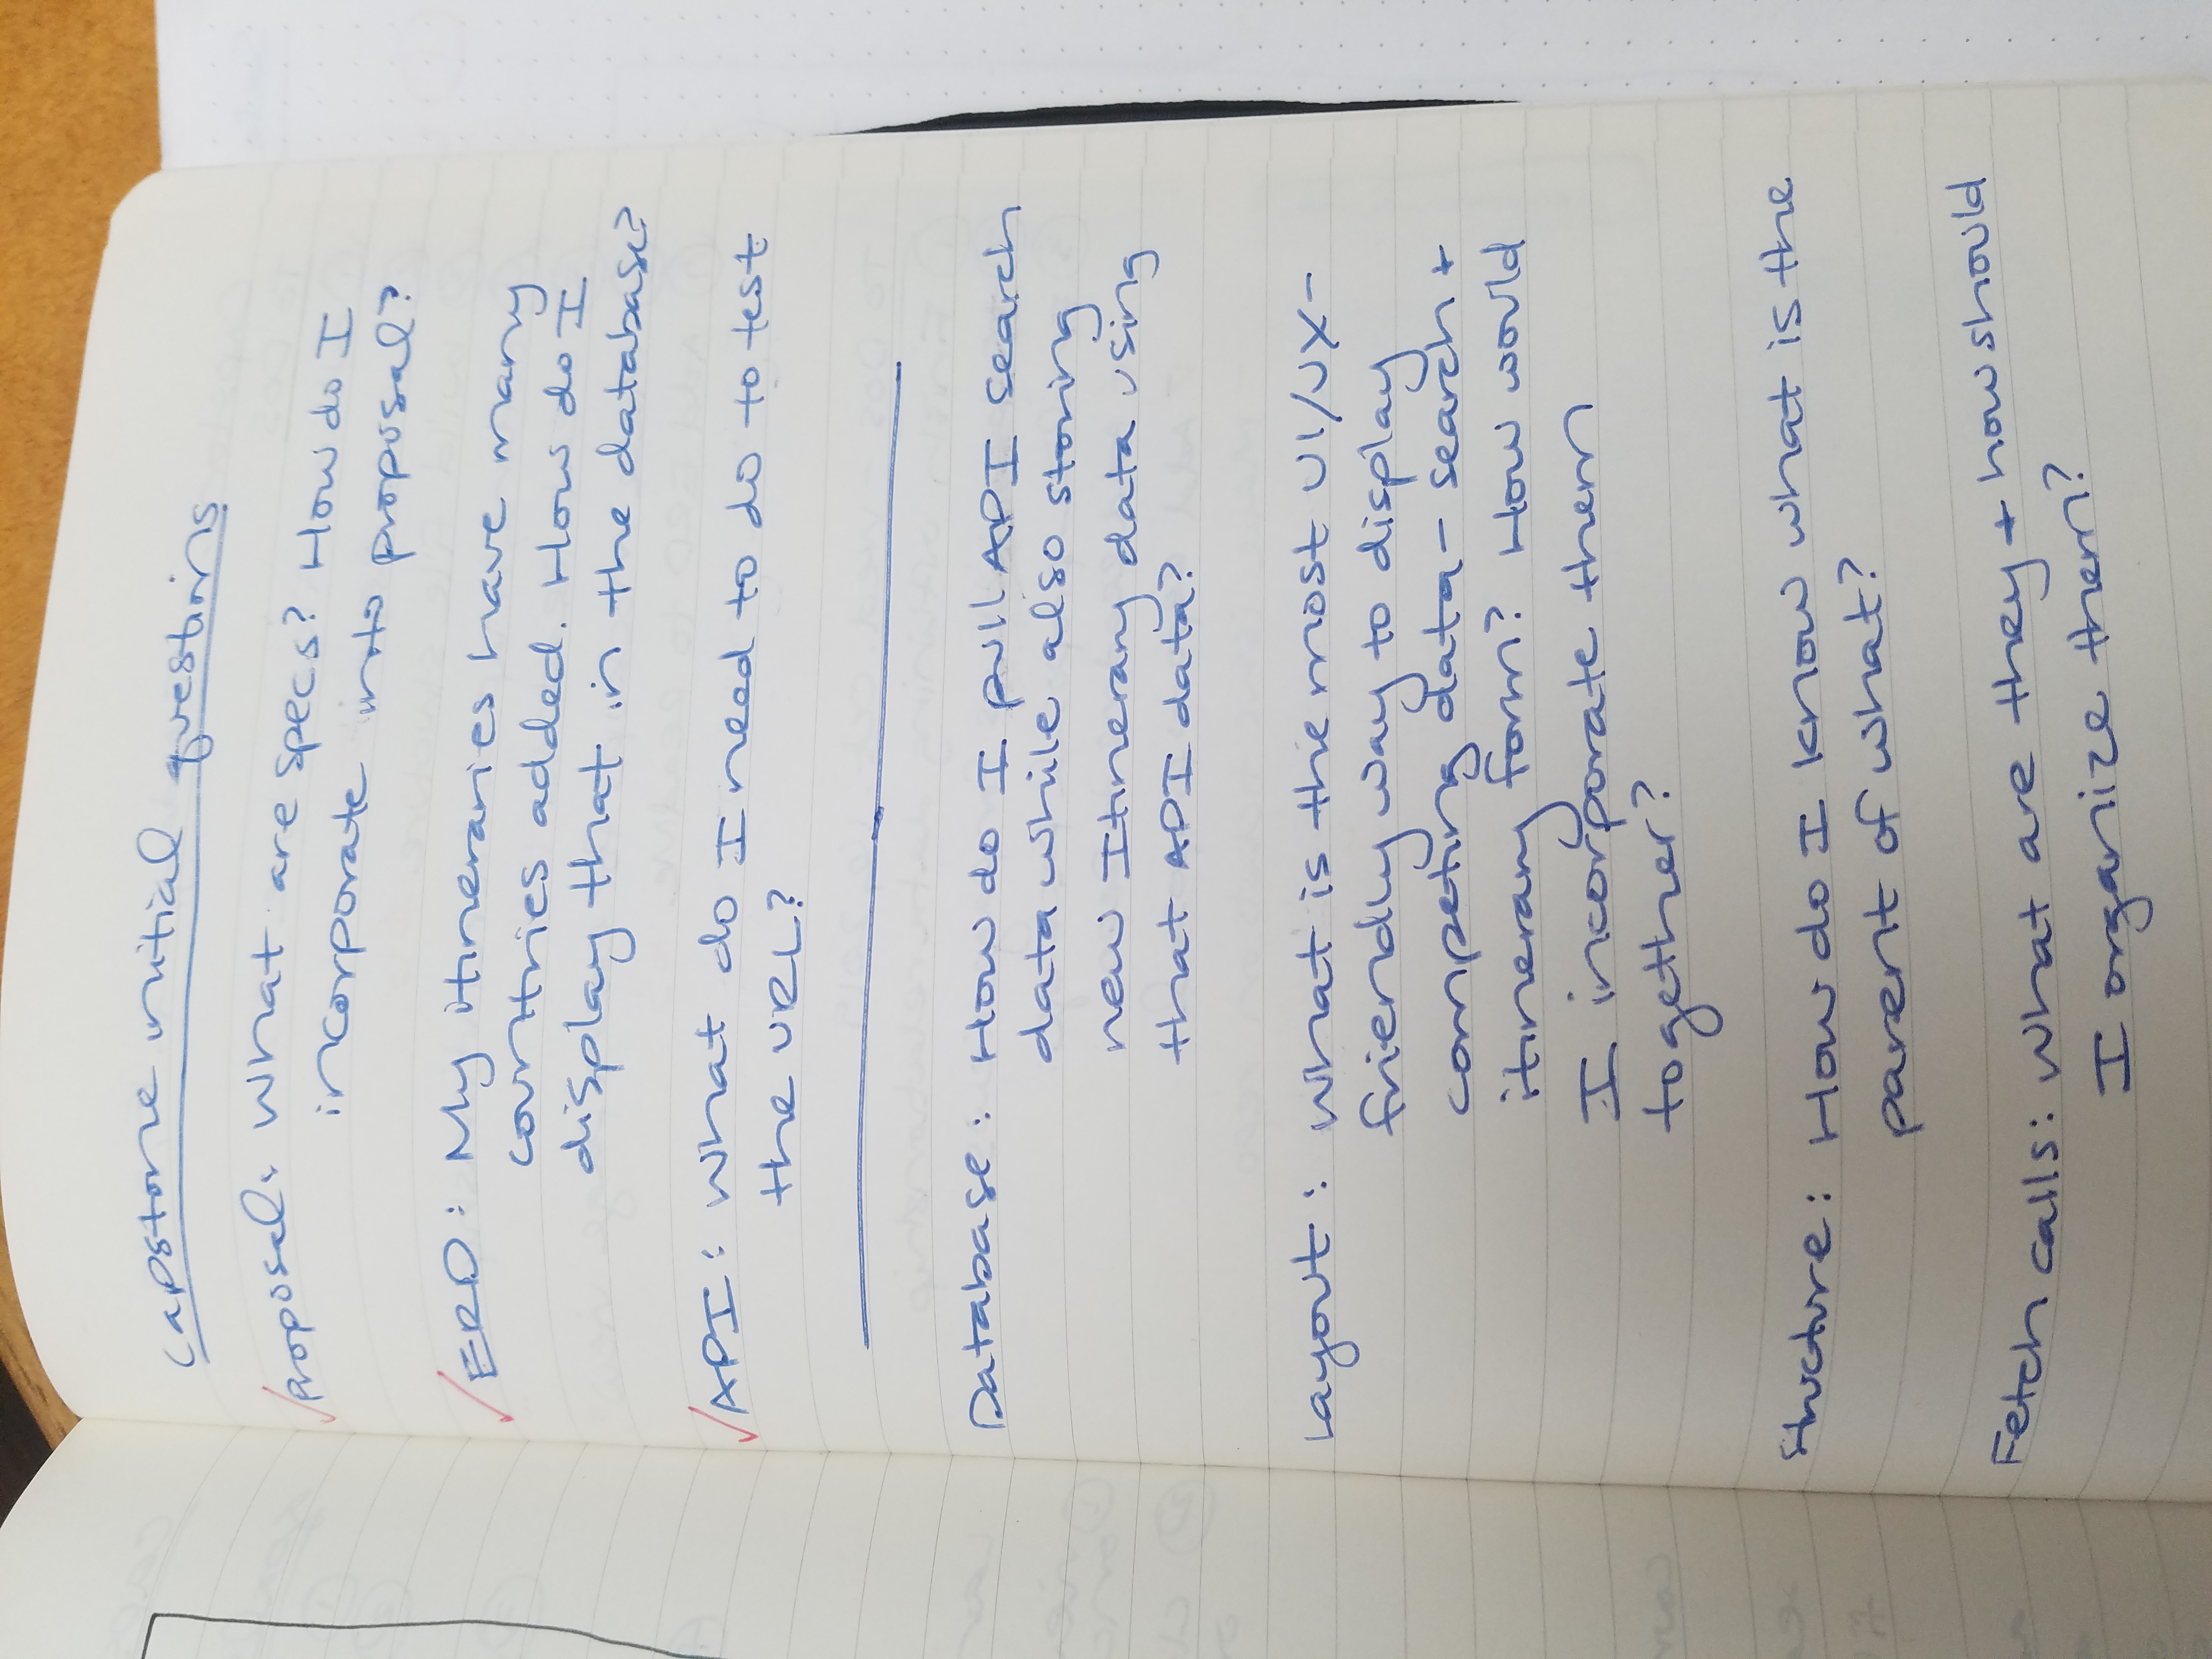 Capstone initial questions
✓ Proposal: What are specs? How do I
incorporate into proposal?
✓ ERD: My itineraries have many
countries added. How do I
display that in the database?
✓ API: What do I need to do to test
the URL?
Database: How do I pull API search
data while also storing
new Itinerary data using
that API data?
Layout: What is the most UI/UX-
friendly way to display
competing data - search +
itinerary form? How would
I incorporate them
together?
Structure: How do I know what is the
parent of what?
Fetch calls: What are they + how should
I organize them?